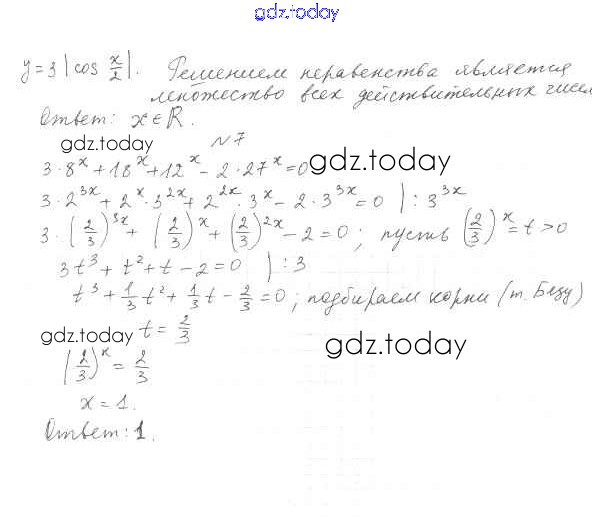 gdz.today
y = 3 |cos x/2|. Решением неравенства является
множество всех действительных чисел
Ответ: x ∈ R.
gdz.today
N 7
3·8^x + 18^x + 12^x - 2·27^x = 0
gdz.today
3·2^3x + 2^x·3^2x + 2^2x·3^x - 2·3^3x = 0 | : 3^3x
3·(2/3)^3x + (2/3)^x + (2/3)^2x - 2 = 0; пусть (2/3)^x = t > 0
3t^3 + t^2 + t - 2 = 0 | : 3
t^3 + 1/3 t^2 + 1/3 t - 2/3 = 0; подбираем корни (т. Безу)
gdz.today
t = 2/3
gdz.today
(2/3)^x = 2/3
x = 1.
Ответ: 1.